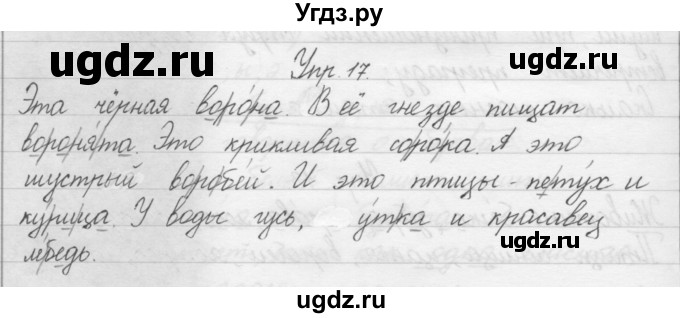 Угдз.ру
ugdz.ru
ugdz.ru
Упр. 17.
Эта чёрная воро́на. В её гнезде пищат
вороня́та. Это крикливая соро́ка. А это
ugdz.ru
шустрый воробе́й. И это птицы - пету́х и
ку́рица. У воды гусь, у́тка и красавец
ugdz.ru
ле́бедь.
ugdz.ru